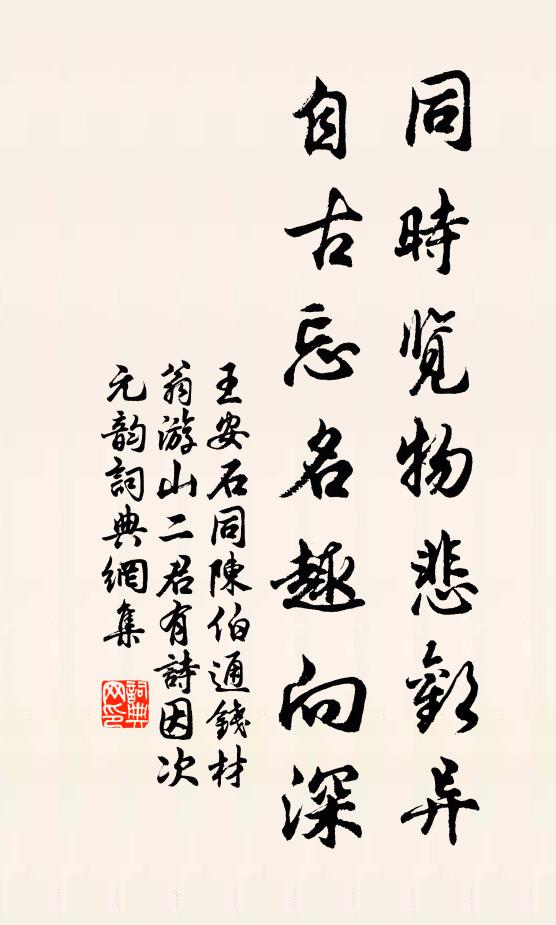 同時览物悲歡异
自古忘名趣向深
王安石同陳伯通錢材
翁游山二君有詩因次
元韵詞典網集
詞典
网印